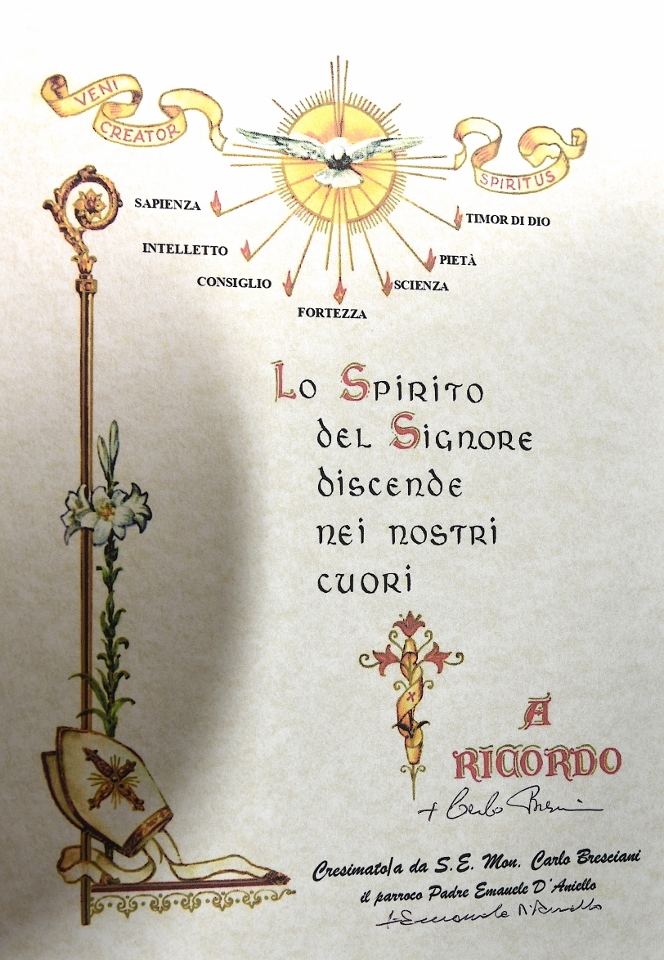 VENI
CREATOR
SPIRITUS
SAPIENZA
TIMOR DI DIO
INTELLETTO
PIETÀ
CONSIGLIO
SCIENZA
FORTEZZA
Lo Spirito
del Signore
discende
nei nostri
cuori
A
RICORDO
+ Carlo Bresciani
Cresimato/a da S.E. Mon. Carlo Bresciani
il parroco Padre Emauele D'Aniello
Emanuele D'Aniello